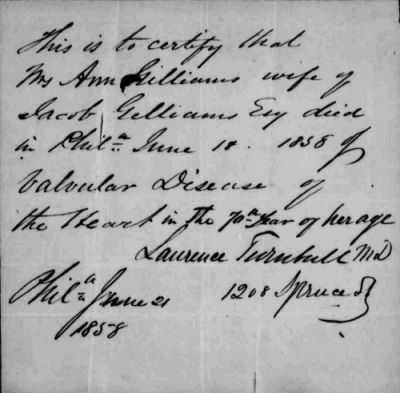 This is to certify that
Mrs Ann Gilliams wife of
Jacob Gilliams Esq died
in Phila June 18. 1858 of
Valvular Disease of
the Heart in the 70th year of her age
Laurence Turnbull MD
Phila June 21 1208 Spruce St
1858